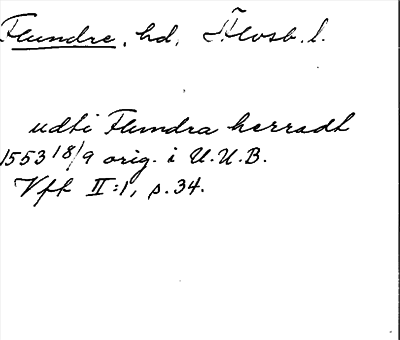 Flundre, hd, Älvsb. l.
udti Flundra herradt
1553 18/9 orig. i U.U.B.
Vff II:1, s.34.